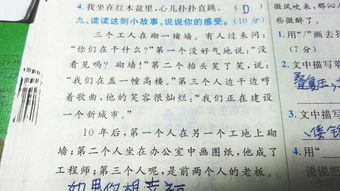 4.我坐在红木盆里,心儿扑扑直跳。 (D)
九、读读这则小故事,说说你的感受。(10分)
三个工人在砌一堵墙。有人过来问:
“你们在干什么?”第一个没好气地说:“没
看见吗?砌墙!”第二个抬头笑了笑,说:
“我们在盖一幢高楼。”第三个人边干边哼
着歌曲,他的笑容很灿烂:“我们正在建设
一个新城市。”
10年后,第一个人在另一个工地上砌
墙;第二个人坐在办公室中画图纸,他成了
工程师;第三个人呢,是前两个人的老板。
如果你想幸福
微风吹来,那
些微醉了。
2.用“/”画去
(7分)
2.文中描写
3.文中描写
4.用“
说说把